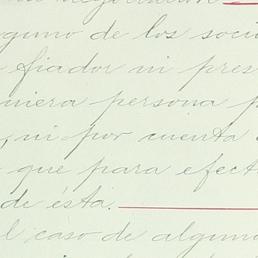 guno de los soci
fiador ni pres
niera persona p
, ni por cuenta
que para efect
de ésta.
l caso de algun